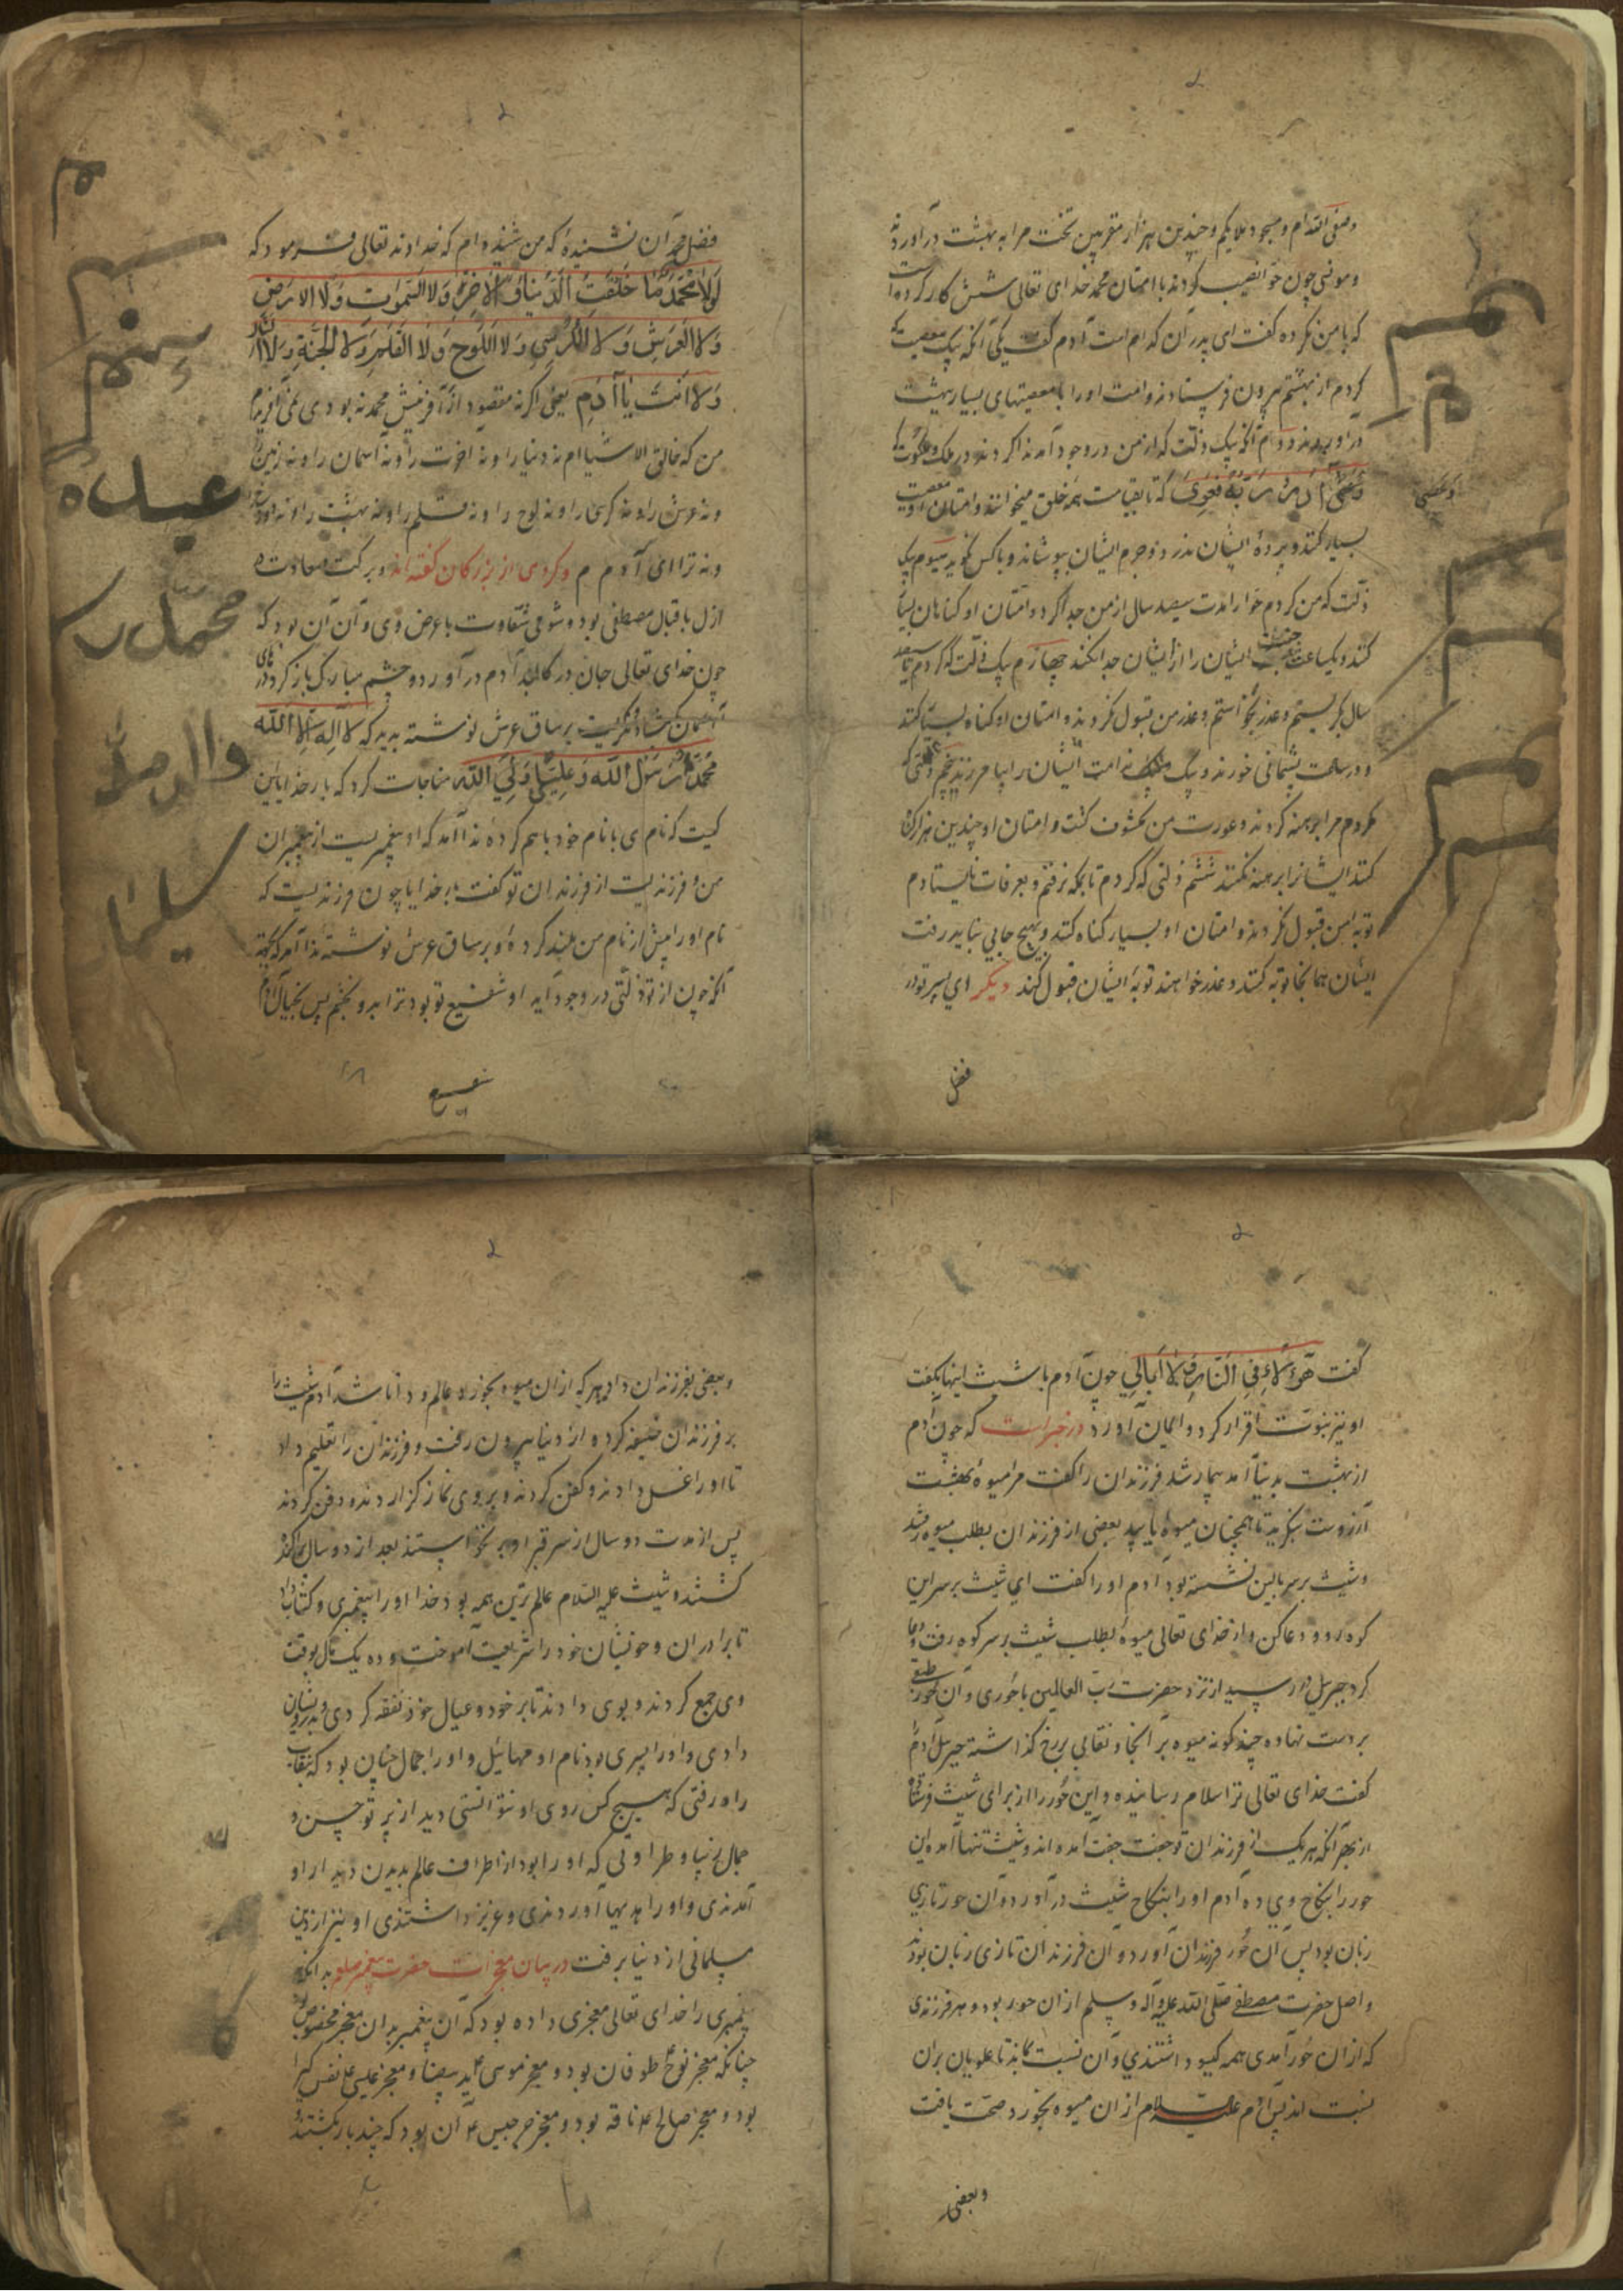 وصفی الله ام و مسجود ملایکم و چندین هزار مقربین تخت مرا به بهشت درآوردند
که با من نکرده گفت ای پدر آن کدام است آدم گفت یکی آنکه بیک معصیت که
کردم از بهشتم بیرون فرستادند و امت او را با معصیتهای بسیار بهشت
درآورند دوم آنکه یک ذلت که از من در وجود آمد ندا کردند در ملک و ملکوت که
وَعَصَىٰ آدَمُ رَبَّهُ فَغَوَىٰ که تا بقیامت همه خلق میخوانند و امتان او معصیت
بسیار کنند و پردهٔ ایشان ندرد و جرم ایشان بپوشاند و با کس نگوید سیوم یک
ذلت که من کردم حوا را مدت سیصد سال از من جدا کرد و امتان او گناهان بسیار
کنند و یکساعت جفت ایشان را از ایشان جدا نکند چهارم یک ذلت که کردم تا سیصد
سال بگریستم و عذر بخواستم و عذر من قبول نکردند و امتان او گناه بسیار کنند
کردم مرا برهنه کردند و عورت من مکشوف گشت و امتان او چندین هزار گناه
کنند ایشانرا برهنه نکنند ششم ذلتی که کردم تا بمکه نرفتم و بعرفات نایستادم
توبه من قبول نکردند و امتان او بسیار گناه کنند و بهیچ جایی نباید رفت
ایشان همانجا توبه کنند و عذر خواهند توبهٔ ایشان قبول کند دیگر ای پسر تو در
فضل
فضل محمد آن نشنیدهٔ که من شنیده ام که خداوند تعالی فرمود که
لَولا مُحَمَّد مَا خَلَقتُ الدُّنیا وَ الآخِرَة وَلا السَّموات وَلا الارض
وَلا العَرش وَلا الکُرسِی وَلا اللَوح وَلا القَلَم وَلا الجَنَّة وَلا النار
وَلا اَنتَ یا آدَم یعنی اگر نه مقصود از آفرینش محمد نه بودی نمی آفریدم
من که خالق الاشیاام نه دنیا را و نه آخرت را و نه آسمان را و نه زمین را
و نه عرش را و نه کرسی را و نه لوح را و نه قلم را و نه بهشت را و نه دوزخ را
و نه ترا ای آدم م و کردی از بزرکان گفته اند و برکت سعادت ه
ازل باقبال مصطفی بود و شومی شقاوت باعرض وی و آن آن بود که
چون خدای تعالی جان در کالبد آدم درآورد دو چشم مبارک باز کرد درهای
آسمان گشاد نگریست بر ساق عرش نوشته بدید که لا اِلهَ اِلا اللّه
مُحَمَّد رَسُولُ اللّه وَ عَلِی وَلِیُّ اللّه مناجات کرد که بار خدایا این
کیست که نام وی با نام خود باهم کردهٔ ندا آمد که او پیغمبریست از پیغمبران
من و فرزندیست از فرزندان تو گفت بار خدایا چون فرزندیست که
نام او را پیش از نام من بلند کردهٔ و بر ساق عرش نوشته ندا آمد که
آنکه چون از تو ذلتی در وجود آید او شفیع تو بود ترا بدو بخشم پس
شفیع
گفت هؤُلاءِ فِی النَّارِ وَلا اُبالِی چون آدم با شیث اینها بگفت
او نیز بنبوت اقرار کرد و ایمان آورد در خبر است که چون آدم
از بهشت بدنیا آمد بیمار شد فرزندان را گفت مرا میوهٔ بهشت
آرزوست بنگرید تا همچنان میوهٔ یابید بعضی از فرزندان بطلب میوه رفتند
و شیث بر سر بالین نشسته بود آدم او را گفت ای شیث بر سر این
کوه رو و دعا کن و از خدای تعالی میوهٔ بطلب شیث بر سر کوه رفت و دعا
کرد جبریل در رسید از نزد حضرت رب العالمین با حوری و آن حور طبقی
بر دست نهاده چند گونه میوه بر آنجا و نقابی بر رخ گذاشته جبریل آدم را
گفت خدای تعالی ترا سلام رسانیده و این حور را از برای شیث فرستاده
از بهر آنکه هر یک از فرزندان تو جفت جفت آمده اند و شیث تنها آمده این
حور را بنکاح وی ده آدم او را بنکاح شیث درآورد و آن حور تازی
زبان بود پس آن حور فرزندان آورد و آن فرزندان تازی زبان بودند
و اصل حضرت مصطفی صلی الله علیه و آله و سلم از آن حور بود و هر فرزندی
که از آن حور آمدی همه گیسو داشتندی و آن نسبت بماند تا علویان بران
نسبت اند پس آدم علیه السلام از آن میوه بخورد صحت یافت
و بعضی
و بعضی بفرزندان داد هر که از آن میوه بخورد عالم و دانا شد آدم شیث را
بر فرزندان خلیفه کرده از دنیا بیرون رفت و فرزندان را تعلیم داد
تا او را غسل دادند و کفن کردند و بر وی نماز گزاردند و دفن کردند
پس از مدت دو سال از سر قبر او برنخواستند بعد از دو سال
گشتند و شیث علیه السلام عالم ترین همه بود خدا او را پیغمبری و کتاب داد
تا برادران و خویشان خود را شریعت آموخت و ده یک مال بوقت
وی جمع کردند و بوی دادند تا بر خود و عیال خود نفقه کردی و بدرویشان
دادی و او را پسری بود نام او مهائیل و او را جمال چنان بود که نقاب
راه رفتی که هیچ کس روی او نتوانستی دید از پرتو حسن و
جمال زیبا و طراوتی که او را بود از اطراف عالم بدیدن دیدار او
آمدندی و او را هدیها آوردندی و عزیز داشتندی او نیز از دین
مسلمانی از دنیا برفت در بیان معجزات حضرت پیغمبر صلعم بدانکه
پیغمبری را خدای تعالی معجزی داده بود که آن پیغمبر بدان معجز مخصوص بود
چنانکه معجز نوح طوفان بود و معجز موسی ید بیضا و معجز عیسی نفس گیرا
بود و معجز صالح ع ناقه بود و معجز جرجیس ع آن بود که چند بار بکشتند